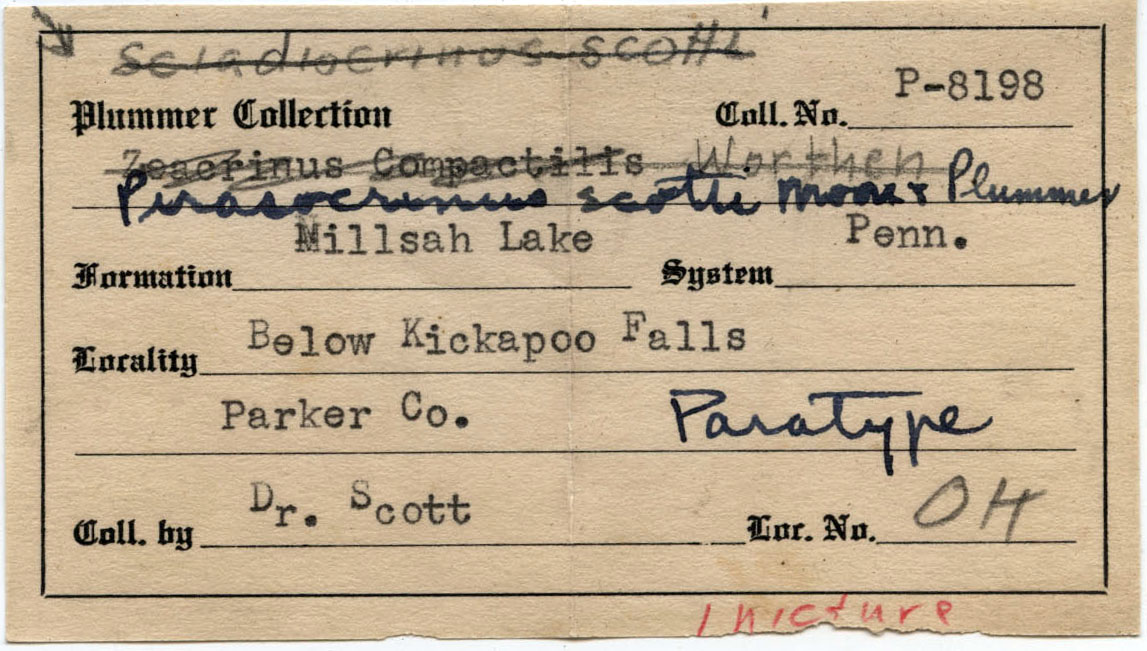 Sciadiocrinus scotti
Plummer Collection Coll. No. P-8198
Zeacrinus Compactilis Worthen
Pirasocrinus scotti Moore & Plummer
Formation Millsah Lake System Penn.
Locality Below Kickapoo Falls
Parker Co. Paratype
Coll. by Dr. Scott Loc. No. OH